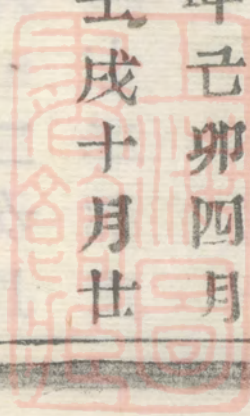 年己卯四月
壬戌十月廿